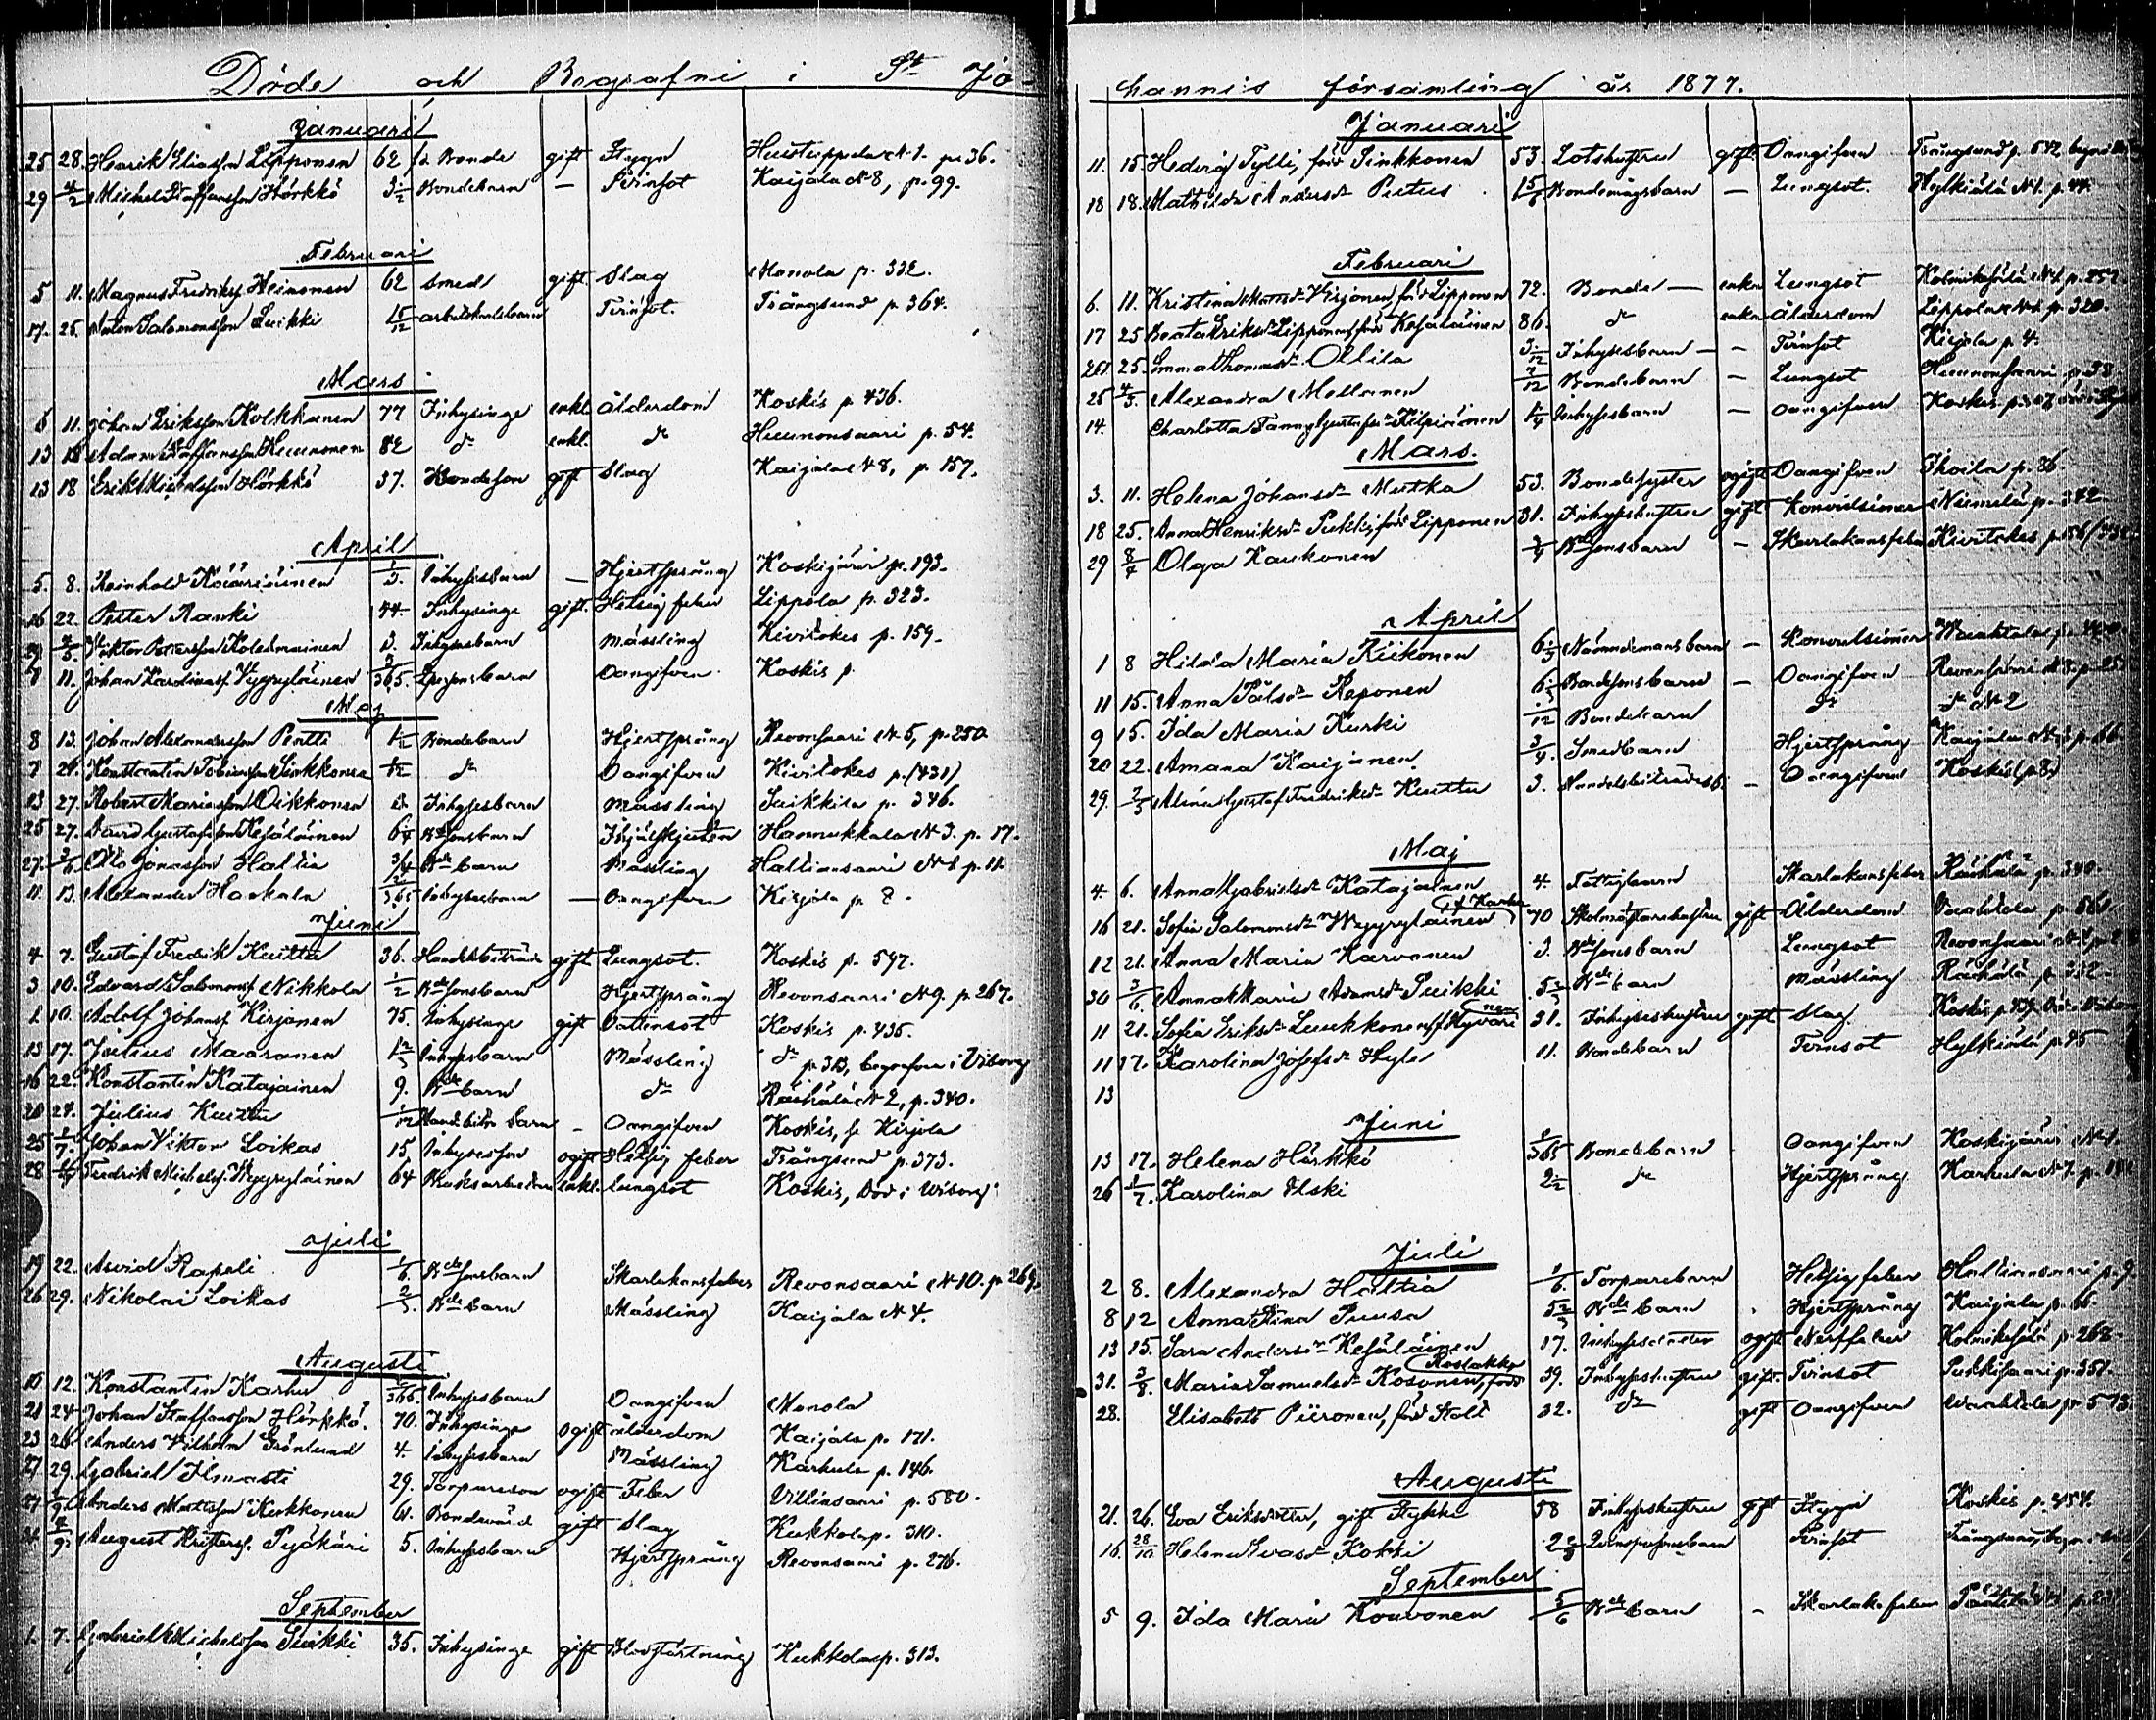 Döde och Begrafne i St Jo-
Januari
25 28. Henrik Eliasson Lipponen 62 f.d. Bonde gift Stygn p. 36.
29 4/2 Michel Staffansson Hörkkö 3 1/2 Bondebarn — Tvinsot Kaijala N 8, p. 99.
Februari
5 11. Magnus Fredriksf. Heinonen 62 Smed gift Slag Monola p. 332.
17. 25. Anton Salomonsson Suikki 15/12 Tvinsot. Trångsund p. 364.
Mars
6 11. Johan Eriksson Kolkkanen 77 Inhysinge enkl. ålderdom Koskis p. 436.
13 18 Adam Staffansson Huunonen 82 do enkl. do Huunonsaari p. 54.
13 18 Erik Michelsson Hörkkö 37. Bondeson gift Slag Kaijala N 8, p. 157.
April
5. 8. Reinhold Kääriäinen 1/3. Inhysesbarn — Hjertsprång Koskijärvi p. 193.
16 22. Petter Ranki 44. Inhysinge gift. Hetsig feber Lippola p. 323.
29 2/5. Viktor Pettersson Kolehmainen 3. Inhysesbarn Mässling Kivilokes p. 159.
7 11. Johan Karolinasf. Vyyryläinen 2/365. barn Oangifven Koskis p.
Maj
8 13. Johan Alexandersson Pentti 1 1/2 Bondebarn Hjertsprång Revonsaari N 5, p. 250
7 21. Konstantin Tobiasson Sinkkonen do Oangifven Kivilokes p. (431)
13 27. Robert Mariasson Oikkonen Inhysesbarn Mässling Suikkila p. 346.
25 27. David Gustafsson Kesäläinen Bdesonsbarn Hannukkala N 3. p. 17.
27. 3/6. Otto Jonasson Hallia 3/4 Bdebarn Mässling Halliansaari N 1 p. 11.
11. 13. Alexander Haakala 2/365 Inhysesbarn — Oangifven Kirjola p 8.
Juni
4 7. Gustaf Fredrik Kuittu 36. Handelsbiträde gift Lungsot. Koskis p. 597.
3 10. Edvard Salomonsf. Nikkola 1/2 Bdesonsbarn Hjertsprång Revonsaari N 9. p. 267.
2 10. Adolf Johansf. Kirjanen 75. Inhysinge gift Vattensot Koskis p. 435.
13 17. Julius Maaranen 1 2/3 Inhysesbarn Mässling do p. 313, begrafven i Viborg
16 22. Konstantin Katajainen 9. Bdebarn do Räihälä N 2, p. 340.
20 24. Julius Kuittu 1/12 Handelsbitr. barn — Oangifven Koskis, f. Kirjola
25 1/7. Johan Viktor Loikas 15 Inhyseson ogift Hetsig feber Trångsund p. 373.
28 Fredrik Michelsf. Wyyryläinen 64 Bruksarbetare enkl. lungsot Koskis, död i Wiborg
Juli
19 22. Arvid Rapeli 1/6. Bdesonsbarn Skarlakansfeber Revonsaari N 10. p. 269.
26 29. Nikolai Loikas 2/3. Bdebarn Mässling Kaijala N 4.
Augusti
10 12. Konstantin Karhu Inhysesbarn Oangifven Monola
21 24 Johan Staffansson Hörkkö. 70. Inhysinge ogift ålderdom Kaijala p. 171.
23 26 Anders Vilhelm Grönlund 4. Inhysesbarn Mässling Karhula p. 146.
27 29. Gabriel Ilmasti 29. Torpareson ogift Feber Villinsaari p. 580.
27 2/9. Anders Mattsson Kukkonen 61. Bondevärd gift Slag Kukkola p. 310.
31 2/9. August Kristersf. Pyökäri 5. Inhysesbarn Hjertsprång Revonsaari p. 276.
September
1. 7. Gabriel Michelsson Suikki 35. Inhysinge gift Blodstörtning Kukkola p. 313.
hannis församling år 1877.
Januari
11. 15. Hedvig Tylli, född Sinkkonen 53. Lotshustru gift Oangifven Trångsund p. 572
18 18. Mathilda Andersdr Pietus Bondemågsbarn — Lungsot. Hylkiälä N 1. p. 44.
Februari
6. 11. Kristina Mattsdr Virjonen, född Lipponen 72. Bonde — enka Lungsot Kolmikesälä N 1. p. 252
17 25 Beata Eriksdr Lipponen, född Kesäläinen 86. do enka Ålderdom Lippola p. 320.
20. 25. Emma Thomasdr Ollila 3/12 Inhysesbarn — Tvinsot Kirjola p. 4.
25 4/3. Alexandra Mellanen 7/12 Bondebarn — Lungsot Huunonsaari p. 38
14. Charlotta Fanny Gustafsdr Kilpiäinen 1/4 Inhysesbarn — oangifven Koskis
Mars.
3. 11. Helena Johansdr Mutka 53. Bondesyster ogift Oangifven Ihoila p. 86
18 25. Anna Henriksdr Pukki, född Lipponen 31. Inhyseshustru gift Konvulsioner Niemelä p. 342
29 8/4 Olga Kaukonen 3/4 Bdesonsbarn — Skarlakansfeber Kivilokes
April
1 8 Hilda Maria Riikonen Nämndemansbarn — Konvulsioner Waahtola
11 15. Anna Pålsdr Reponen Bondesonsbarn — Oangifven Revonsaari
9 15. Ida Maria Kurki Bondebarn do do N 2
20 22. Amana Kaijanen. 3/4. Smedbarn Hjertsprång Kaijala
29. 2/5 Alina Gustaf Fredriksdr Kuittu 3. Handelsbiträdesb. — Oangifven Koskis
Maj
4. 6. Anna Gabrielsdr Katajainen 4. Fattigbarn Skarlakansfeber Räihälä p. 340.
16 21. Sofia Salomonsdr Wyyryläinen f. Karhu 70 Skolmästarehustru gift Ålderdom Vaahtola
12 21. Anna Maria Karvonen 3. Bdesonsbarn Lungsot Revonsaari
30 3/6. Anna Maria Adamsdr Suikki Bdebarn Mässling Räihälä p. 332
11 21. Sofia Eriksdr Luukkonen f. Hyvärinen 31. Inhyseshustru gift Slag. Koskis
11 17. Karolina Josefsdr Hyle 11. Bondebarn Tvinsot Hylkiälä p. 45
13
Juni
13 17. Helena Hörkkö Bondebarn Oangifven Koskijärvi N 1.
26 1/7. Karolina Ilski 2 1/2 do Hjertsprång Karhula N 7.
Juli
2 8. Alexandra Hallia 1/6. Torparebarn Hetsig feber Hallionsaari p. 9
8 12 Anna Stina Puusa Bdebarn Hjertsprång Kaijala p. 66.
13 15. Sara Andersdr Kesäläinen 17. Inhysesdotter ogift Nerffeber Kolmikesälä p. 262.
31. 3/8. Maria Samuelsdr Kosonen, född Roslakka 39. Inhyseshustru gift. Tvinsot Pukkisaari p. 351.
28. Elisabeth Piironen, född Stolt 32. do gift Oangifven Waahtola p. 573.
Augusti
21. 26. Eva Eriksdotter, gift Tykki 58 Inhyseshustru gift Stygn Koskis p. 454.
16. 28/10 Helena Evasdr Kokki 2 2/3 Tvinsot Trångsund,
September
5 9. Ida Maria Kouvonen 5/6 Bdebarn — Skarlaksfeber